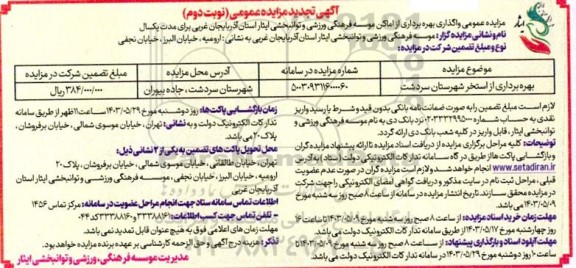 آگهی تجدید مزایده عمومی (نوبت دوم)
مزایده عمومی واگذاری بهره برداری از اماکن موسسه فرهنگی ورزشی و توانبخشی ایثار استان آذربایجان غربی برای مدت یکسال
نام و نشانی مزایده گزار: موسسه فرهنگی ورزشی و توانبخشی ایثار استان آذربایجان غربی به نشانی: ارومیه، خیابان البرز، خیابان نجفی
نوع و مبلغ تضمین شرکت در مزایده:
موضوع مزایده | شماره مزایده در سامانه | آدرس محل مزایده | مبلغ تضمین شرکت در مزایده
بهره برداری از استخر شهرستان سردشت | شهرستان سردشت، جاده بیوران | ۳۸۴/۰۰۰/۰۰۰ ریال
لازم است مبلغ تضمین را به صورت ضمانت نامه بانکی بدون قید و شرط یا رسید واریز
نقدی به حساب شماره نزد بانک دی به نام موسسه فرهنگی ورزشی و
توانبخشی ایثار، قابل واریز در کلیه شعب بانک دی ارائه گردد.
توضیحات: کلیه مراحل برگزاری مزایده از دریافت اسناد مزایده تا ارائه پیشنهاد مزایده گران
و بازگشایی پاکت ها از طریق درگاه سامانه تدارکات الکترونیکی دولت (ستاد) به آدرس
www.setadiran.ir انجام خواهد شد و لازم است مزایده گران در صورت عدم عضویت
قبلی، مراحل ثبت نام در سایت مذکور و دریافت گواهی امضای الکترونیکی را جهت شرکت
در مزایده محقق سازند. تاریخ انتشار مزایده در سامانه از ساعت ۸ صبح روز سه شنبه مورخ
۱۴۰۳/۰۵/۰۹ می باشد.
مهلت زمان خرید اسناد مزایده: از ساعت ۸ صبح روز سه شنبه مورخ ۱۴۰۳/۰۵/۰۹ تا ساعت ۱۶
روز چهارشنبه مورخ ۱۴۰۳/۰۵/۱۷ از طریق سامانه تدارکات الکترونیک دولت می باشد.
مهلت آپلود اسناد و بارگذاری پیشنهاد: از ساعت ۸ صبح روز سه شنبه مورخ ۱۴۰۳/۰۵/۰۹ تا
ساعت ۱۰ روز دوشنبه مورخ ۱۴۰۳/۰۵/۲۹ در سامانه تدارکات الکترونیک دولت می باشد.
زمان بازگشایی پاکت ها: روز دوشنبه مورخ ۱۴۰۳/۰۵/۲۹ ساعت ۱۱ ظهر از طریق سامانه
تدارکات الکترونیک دولت و به نشانی: تهران، خیابان موسوی شمالی، خیابان برفروشان،
پلاک ۲۰ می باشد.
محل تحویل پاکت های تضمین به یکی از ۲ نشانی ذیل:
تهران، خیابان طالقانی، خیابان موسوی شمالی، خیابان برفروشان، پلاک ۲۰
ارومیه، خیابان البرز، خیابان نجفی، موسسه فرهنگی، ورزشی و توانبخشی ایثار استان
آذربایجان غربی
اطلاعات تماس سامانه ستاد جهت انجام مراحل عضویت در سامانه: مرکز تماس ۱۴۵۶
- تلفن تماس جهت کسب اطلاعات: ۳۳۳۸۸۱۶۱ و ۳۳۳۸۸۱۶۰ کد ۰۴۴
مهلت زمان های اعلامی فوق به هیچ عنوان قابل تمدید نمی باشد.
تذکر: هزینه درج آگهی و حق الزحمه کارشناسی بر عهده برنده مزایده خواهد بود.
مدیریت موسسه فرهنگی، ورزشی و توانبخشی ایثار